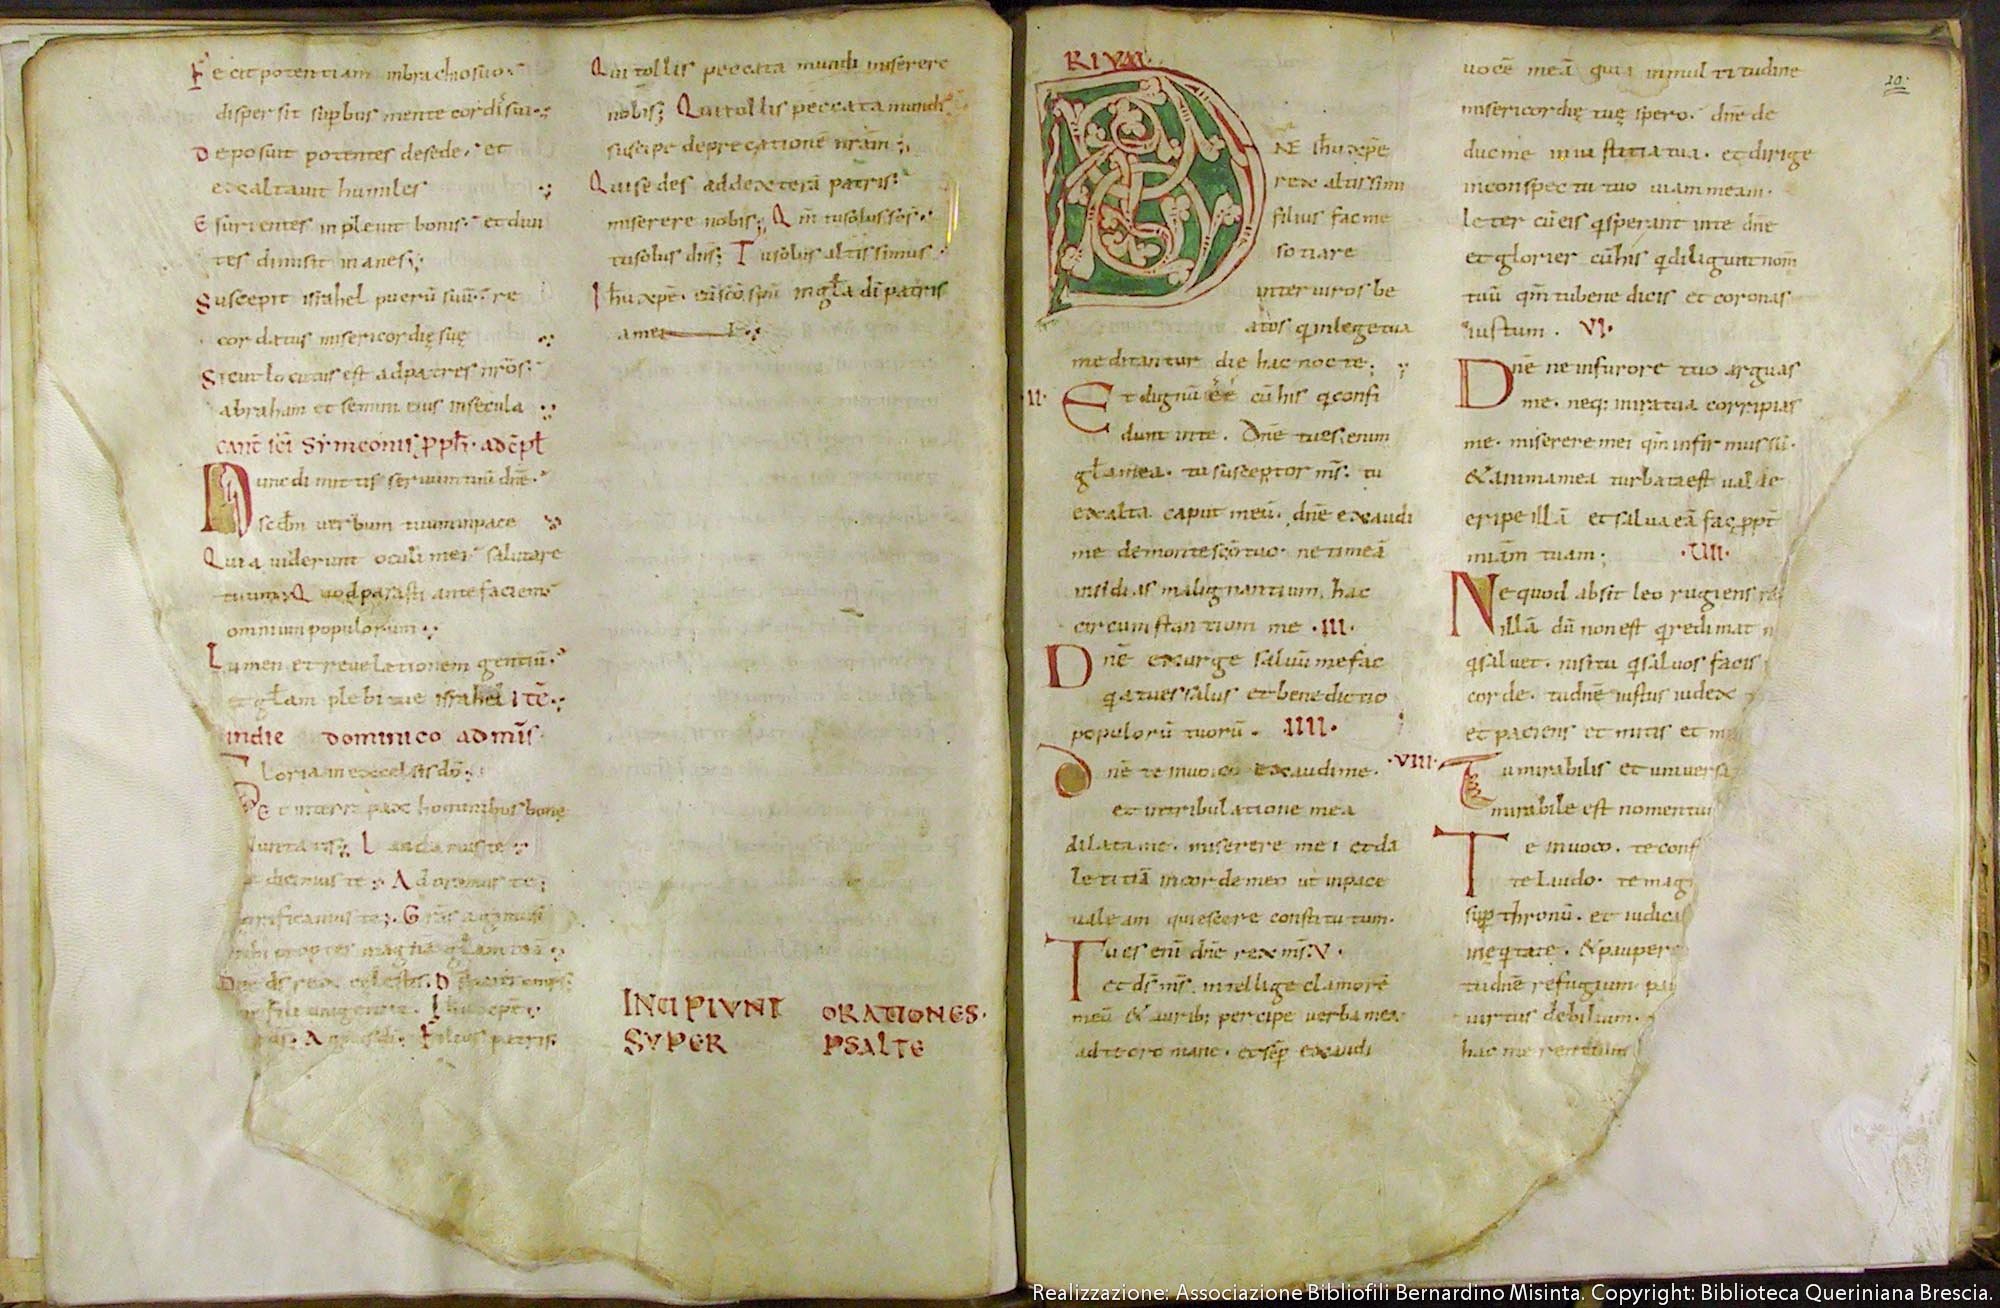 Fecit potentiam inbrachiosuo.
dispersit supbus mente cordissui
Deposuit potentes desede. et
exaltauit humiles
Esurientes inpleuit bonis. et diui
tes dimisit inanes;
Suscepit israhel puerū suū. re
cordatus misericordię suę
Sicut locutus est adpatres nrōs.
abraham et semini eius insecula
Nunc dimittis seruum tuū dnē.
scdm uerbum tuum inpace
Quia uiderunt oculi mei salutare
tuum; Quodparasti ante faciem
omnium populorum
Lumen et reuelationem gentiū.
et glam plebi tue israhel ITĒ
indie dominico admīs
Gloria in excelsis dō;
Et interra pax hominibus bone
luntatis; Laudamus te
dicimus te; Adoramus te;
rificamus te; Gras agimus
tibi propter magnā glam tuā
Dne ds rex celestis. Ds pater omps;
fili unigenite. Ihu xpē;
Agnus di. Filius patris.
Qui tollis peccata mundi miserere
nobis; Qui tollis peccata mundi
suscipe deprecationē nrām;
Qui sedes addexterā patris
miserere nobis; Qm tu solus scs.
tusolus dns; Tusolus altissimus
Ihu xpē. cū scō spū in gla di patris
amen
INCIPIUNT ORATIONES.
SUPER PSALTE
RIUM.
DNĒ ihu xpē
rex altissimi
filius fac me
sociare
inter uiros be
atos qinlegetua
meditantur die hac nocte;
II. Et dignū eē cū his qconfi
dunt inte. Dnē tues enim
gla mea. tu susceptor ms. tu
exalta caput meū. dnē exaudi
me demontescō tuo. ne timeā
insidias malignantium, hac
circumstantium me .III.
Dnē exurge saluū mefac
qatuessalus et benedictio
populorū tuorū. .IIII.
Dnē te inuoco exaudime.
et intribulatione mea
dilatame. miserere mei et da
letitiā incordemeo ut inpace
ualeam quiescere constitutum.
Tu es enī dnē rex ms. V.
et ds ms. intellige clamorē
meū & aurib; percipe uerba mea
ad te oro mane. et sēp exaudi
10.
uocē meā quia inmultitudine
misericordię tuę spero. dnē de
ducme iniustitiatua. et dirige
inconspectu tuo uiam meam.
leter cū eis qsperant inte dnē
et glorier cū his qdiligunt nom
tuū qm tu benedicis et coronas
iustum. VI.
Dnē neinfurore tuo arguas
me. neq; iniratua corripias
me. miserere mei qm infirmus sū.
& anima mea turbataest ualde
eripe illā et salua eā fac ppt
miām tuam; .VII.
Nequod absit leo rugiens
illā dū non est qredimat n
qsaluet. nisi tu qsaluos facis
corde. tudnē iustus iudex
et paciens et mitis et m
.VIII. Tu mirabilis et uniuersa
mirabile est nomen tuū
Te inuoco. te conf
te laudo. te mag
sup thronū. et iudica
in ęqtate. & paupere
tu dnē refugium pau
uirtus debilium.
Realizzazione: Associazione Bibliofili Bernardino Misinta. Copyright: Biblioteca Queriniana Brescia.